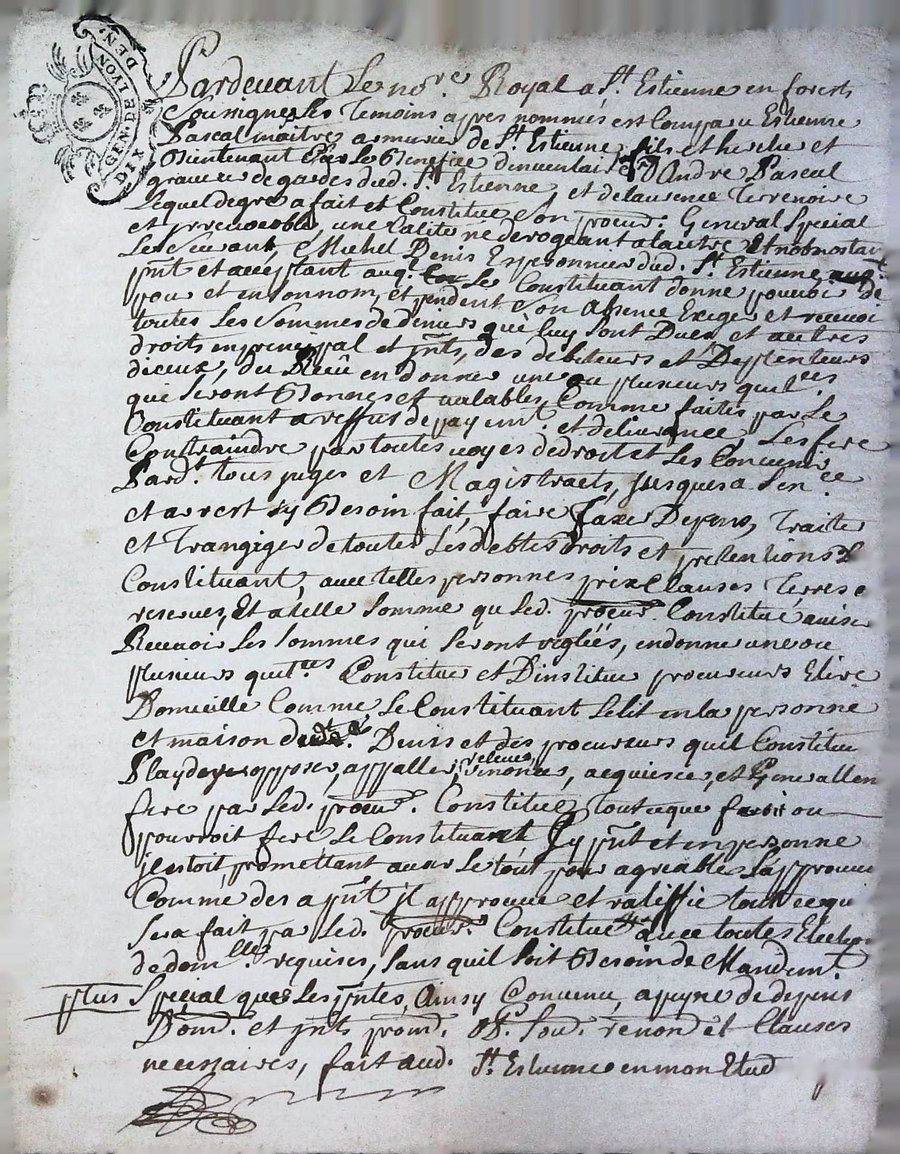 GEN. DE LYON
DIX DEN.
Pardevant Le no.re Royal a St. Estienne en forests
Soussigné Les Temoins apres nommés est Comparu Estienne
Pascal maitre armurie de St. Estienne fils et heritie et
Bientenant Par Le Benefice dinventai d'André Pascal
graveur de gardes dud. St. Estienne, et de Laurence Terrenoire
Lequel degre a fait et Constitué Son procur. General Special
et irrevocable, une Calité ne derogeant a lautre et nobnostan
Michel Denis Esperonnier dud. St. Estienne
pnt et acceptant auq. Le Constituant donne pouvoir De
pour et en son nom, et pendent Son absence Exiger et recevoir
toutes Les Sommes de deniers que luy sont Dues et autres
droits en principal et jnts, des debiteurs et Destenteurs
diceux, du Receu en donner une ou plusieurs quit.ces
que seront Bonnes et valables, Comme faites par Le
Constituant a reffus de payemt. et delivrance, Les fere
Contraindre par toutes voyes de droit et Les Convenir
Pard.t tous juges et Magistraets, jusques a Sen.ce
et arrest sy Besoin fait, faire Taxer Depens, Traiter
et Trangiger de toutes Les debtes droits et pretentions d
Constituant, avec telles personnes prix Clauses Termes e
reserves, Et a telle Somme que Led. procur. Constitué avise
Recevoir Les Sommes qui Seront reglées, en donner une ou
plusieurs quit.ces Constitue et Dinstitue procureurs Elire
Domicille Comme Le Constituant Lelit en la personne
et maison dud. Denis et des procureurs quil Constitue
Playdoyer opposer, appaller, relever renoncer, acquiescer, et Generallem
fere par Led. procur. Constitué tout ce que feroit ou
pourroit fere Le Constituant Sy pnt et en personne
jl estoit promettant avoir Le tout pour agreable Lapprouve
Comme des a pnt jl approuve et ratiffie tout ce que
Sera fait par Led. procur. Constitué avec toutes Election
de dom.lles requises, Sans quil Soit Besoin de Mandem.
plus Special que Les pntes, Ainsy Convenu, a peyne de depens
Dom. et jnts prom. Ob. Soud. renond et Clauses
necessaires, fait aud. St. Estienne en mon Etud